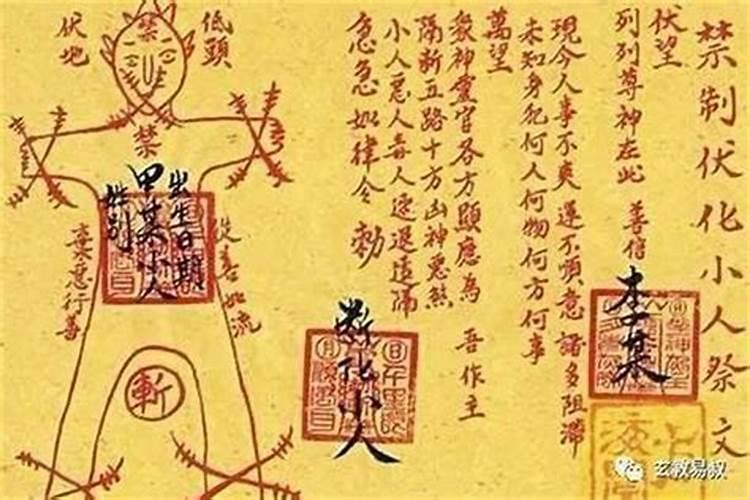 禁制伏化小人祭文
伏望
列列尊神在此 善信
李某
現今人事不爽運不順意諸多阻滯
未知身犯何人何物何方何事
萬望
眾神靈官各方顯應為 吾作主
隔斬五路十方凶神惡煞
小人惡人毒人速退遠隔
急急如律令 勅
斬化小人
低頭
伏地
禁
禁
出生日期
甲某小人
姓別
從善如流
棄惡行善
斬
玄教易叔